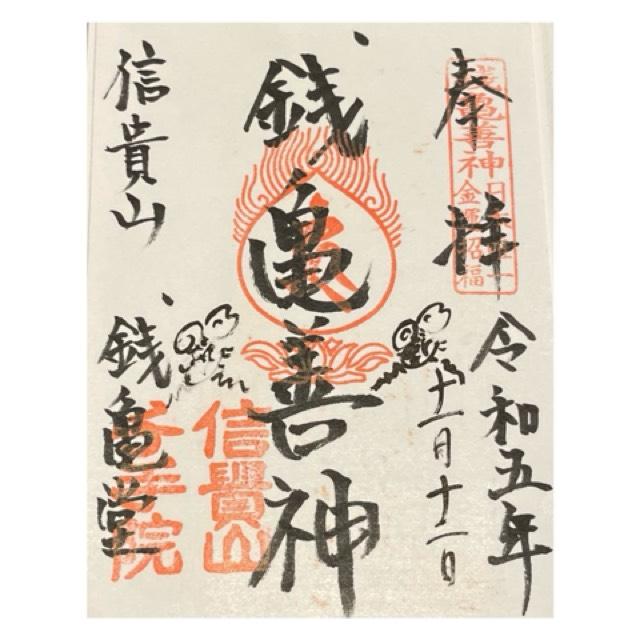 奉拝
令和五年
十一月十二日
銭亀善神
信貴山
銭亀堂
銭亀善神
日本唯一
金運招福
信貴山
千手院